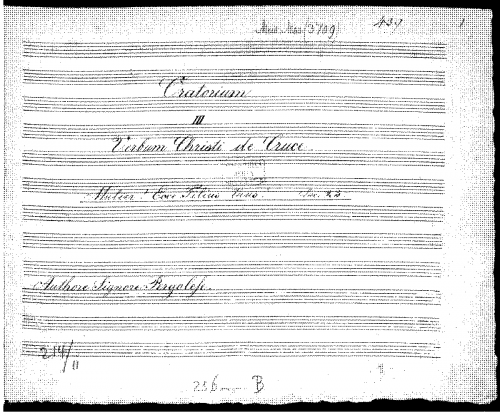 Mus. Mss. (3709) 439 1
Oratorium
III
Verbum Christi de Cruce.
Mulier! Ecce Filius
Authore Signore Pergolese.
214/11
236 B